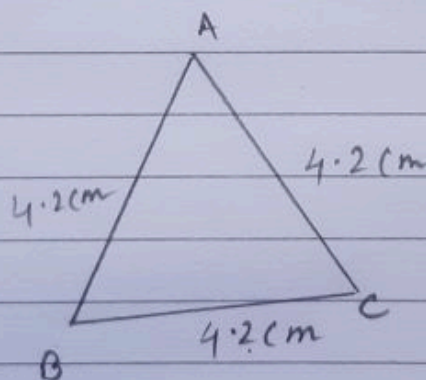 A
4.2cm
4.2cm
C
4.2cm
B